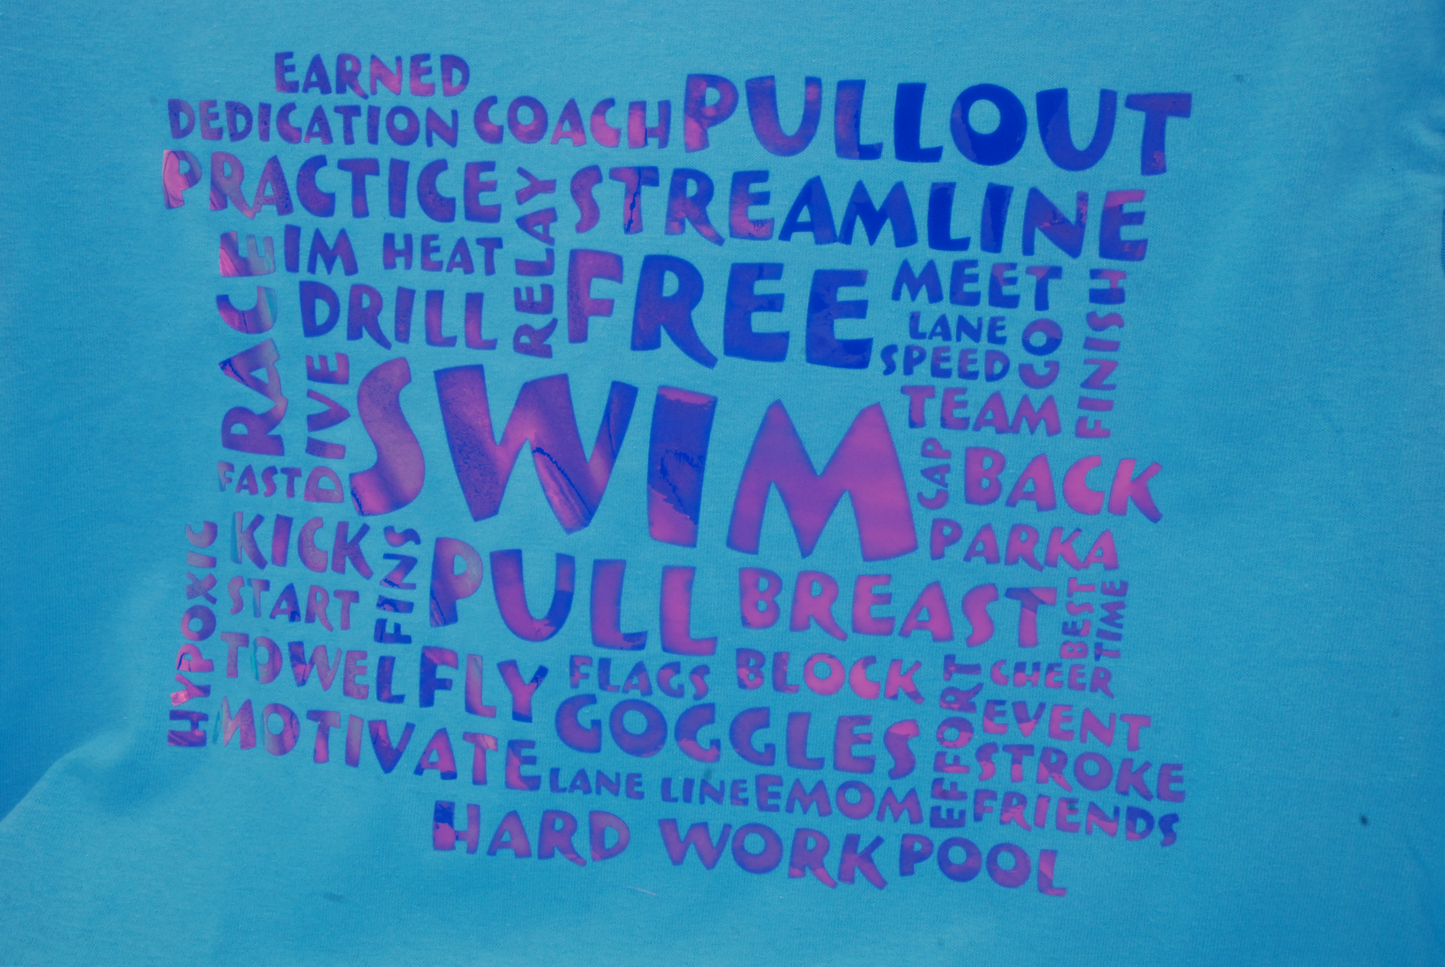 EARNED
DEDICATION COACH PULLOUT
PRACTICE RELAY STREAMLINE
RACE IM HEAT FREE MEET FINISH
DRILL LANE GO
SPEED
DIVE SWIM TEAM
FAST CAP BACK
HYPOXIC KICK FINS PULL BREAST PARKA
START BEST TIME
TOWEL FLY FLAGS BLOCK EFFORT CHEER
MOTIVATE GOGGLES EVENT
STROKE
LANE LINE EMOM FRIENDS
HARD WORK POOL